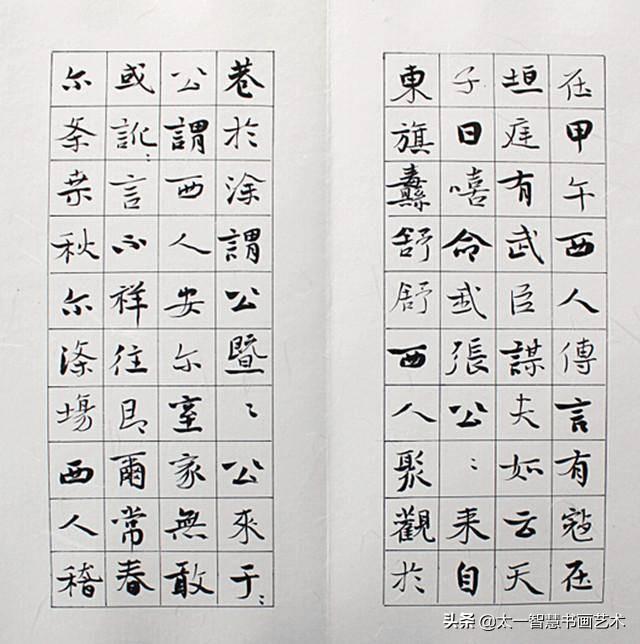 在甲午西人傳言有寇在
垣庭有武臣謀夫如云天
子曰嘻命我張公〻来自
東旗纛舒舒西人聚觀於
巷於涂謂公暨〻公來于〻
公謂西人安尓室家無敢
或訛〻言不祥往即爾常春
尓条桒秋尓滌場西人稽
头条 @太一智慧书画艺术